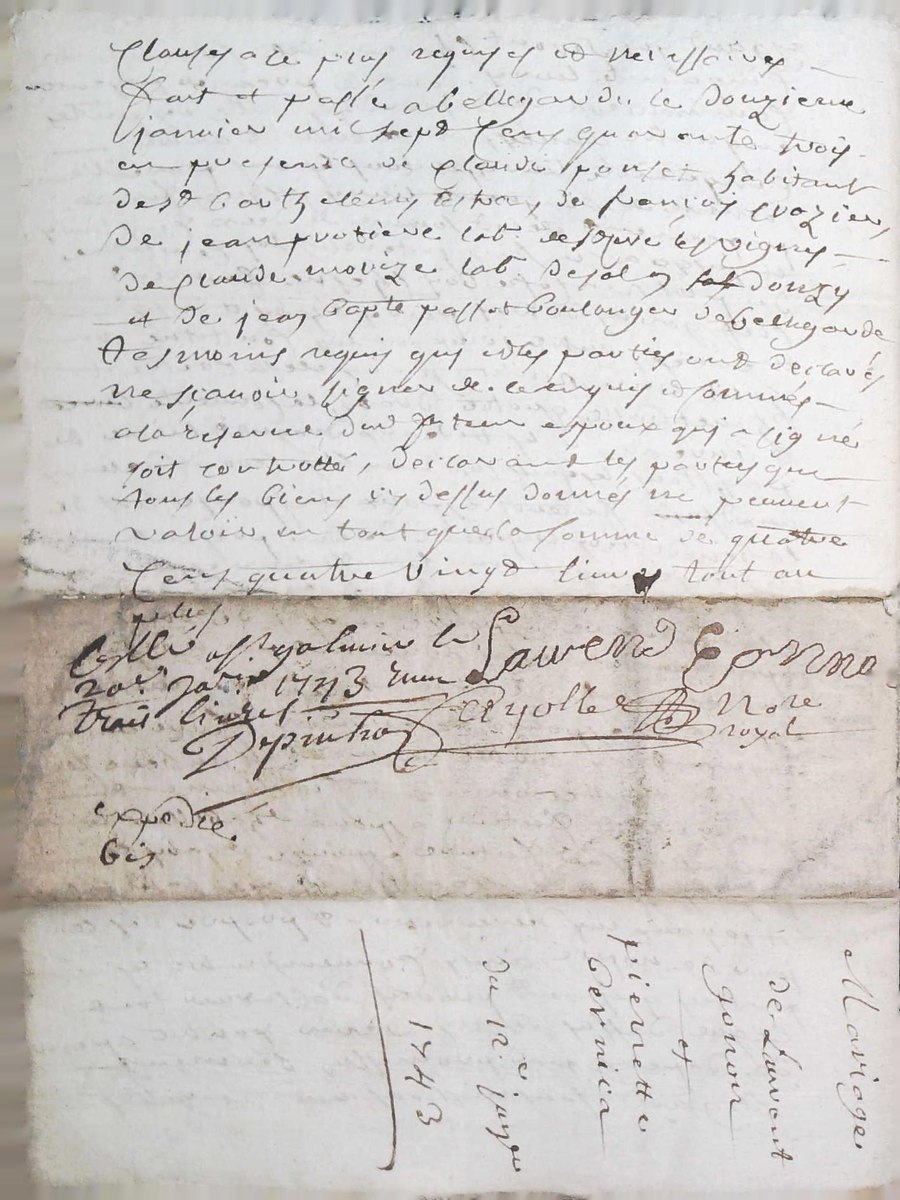 Clauses a ce plus requises et necessaires
fait et passé a bellegarde le douzieme
janvier mil sept cens quarante trois
en presence de Claude ponset habitant
de st barthelemy lestra, de françois crozier,
De jean protiere lab. de st ... les vignes
de Claude ... lab. de sal... donzy
et de jean bapte passot boulanger de bellegarde
tesmoins requis qui et les parties ont declarés
ne sçavoir signer de ce enquis et sommés
a la reserve dud futeur espoux qui a signé
soit controllé, declarant les parties que
tous les biens cy dessus donnés ne peuvent
valoir en tout que la somme de quatre
cens quatre vingt livres tout au
plus
Collé a st galmier le
20e janr 1743 reçu
trois livres
Laurend
nore
royal
expedié
bis
Mariage
de Laurent
gonon
et
pierrette
bernica
du 12e janv
1743